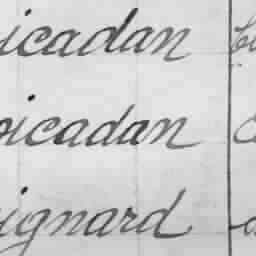 icadan
oicadan
ignard